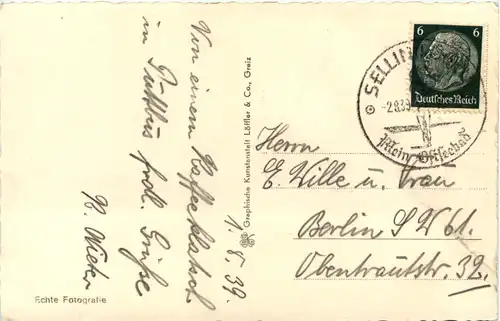 Von einem Kaffeeklatsch
in Puttbus frdl. Grüße
1.8.39.
Echte Fotografie
Graphische Kunstanstalt Löffler & Co., Greiz
6 6
Deutsches Reich
SELLIN
-2.8.39
Mein Ostseebad
Herrn
E. Wille u. Frau
Berlin SW 61.
Obentrautstr. 32.